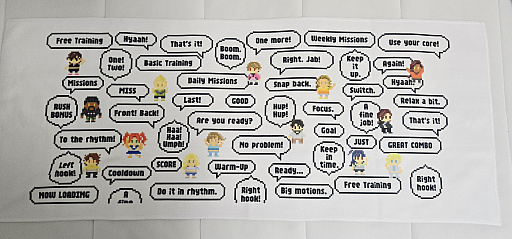 Free Training
Hyaah!
That's it!
Boom.
Boom!
One more!
Weekly Missions
Use your core!
One!
Two!
Basic Training
Right. Jab!
Keep
it
up.
Again!
Missions
MISS
Daily Missions
Snap back.
Switch.
Hyaah!
RUSH
BONUS
Front! Back!
Last!
GOOD
Hup!
Hup!
Focus.
A
fine
job!
Relax a bit.
That's it!
To the rhythm!
Haa!
Haa!
Umph!
Are you ready?
No problem!
Goal
Keep
in
time.
JUST
GREAT COMBO
Left
hook!
Cooldown
SCORE
Warm-Up
Ready...
Free Training
Right
hook!
NOW LOADING
A
fine
Do it in rhythm.
Right
hook!
Big motions.